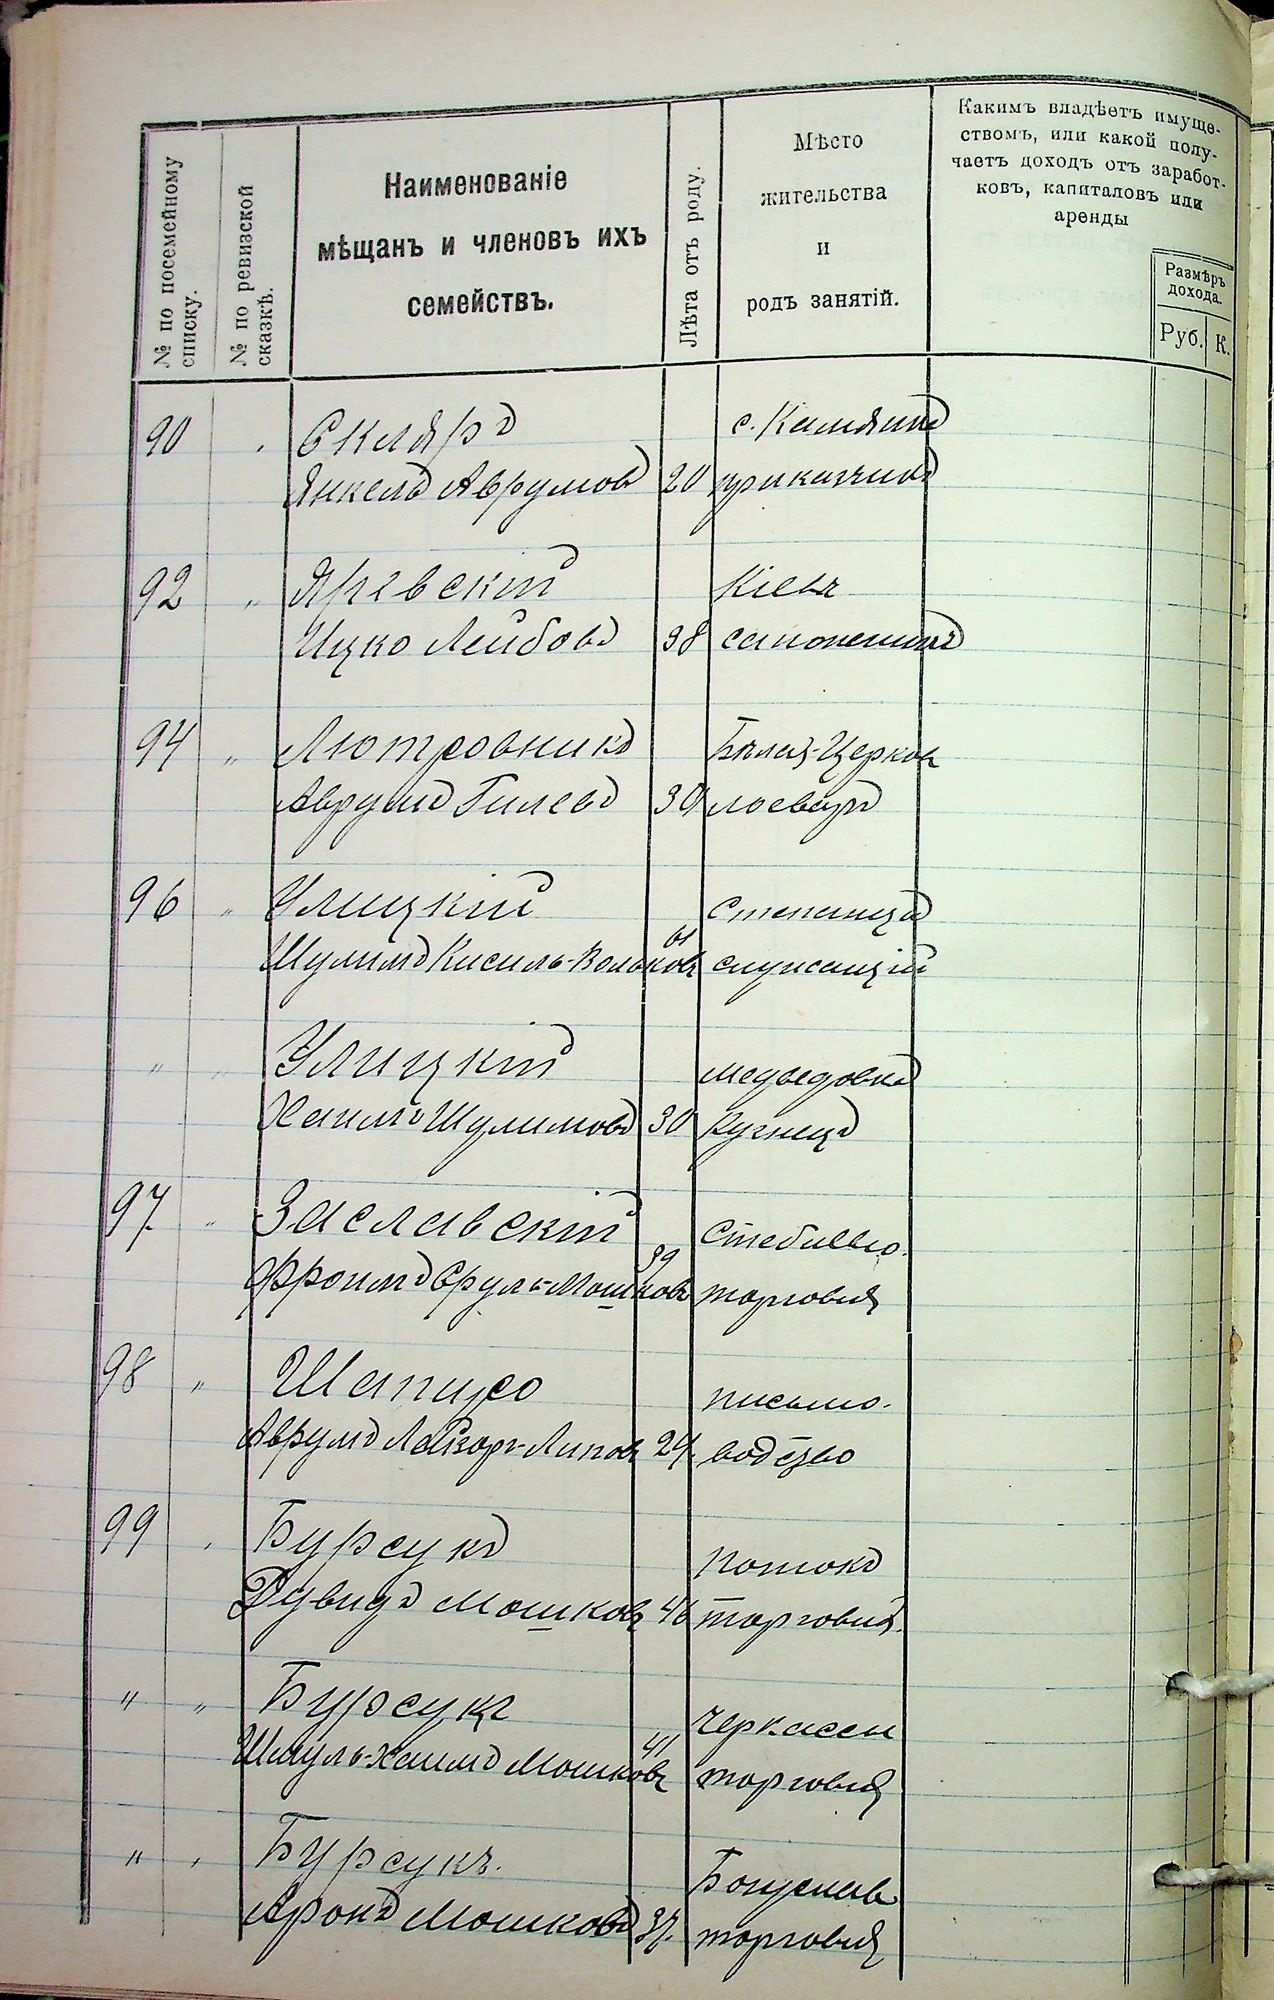 № по посемейному списку.
№ по ревизской сказкѣ.
Наименованіе
мѣщанъ и членовъ ихъ
семействъ.
Лѣта отъ роду.
Мѣсто
жительства
и
родъ занятій.
Какимъ владѣетъ имуще-
ствомъ, или какой полу-
чаетъ доходъ отъ заработ-
ковъ, капиталовъ или
аренды
Размѣръ
дохода.
Руб. К.
90 " Скляръ с.
Янкель Аврумовъ 20 прикащикъ
92 " Яревскій Кіевъ
Ицко Лейбовъ 38 сапожникъ
94 " Лютровникъ Бѣлая-Церковь
Аврумъ Гилевъ 30
96 " Улицкій Степанцы
Шулимъ Кисиль-Вольковъ 61 служащій
" " Улицкій Медведовка
Хаимъ Шулимовъ 30 Кузнецъ
97. " Заславскій Стеблево.
Фроимъ Сруль-Мошковъ 39 торговля
98 " Шапиро письмо-
Аврумъ Лейзоръ-Липовъ 24. водство
99 " Бурсукъ Потокъ
Дувидъ Мошковъ 46 торговля.
" " Бурсукъ Черкассы
Шмуль-Хаимъ Мошковъ 41 торговля
" " Бурсукъ. Богуслав
Аронъ Мошковъ 37. торговля